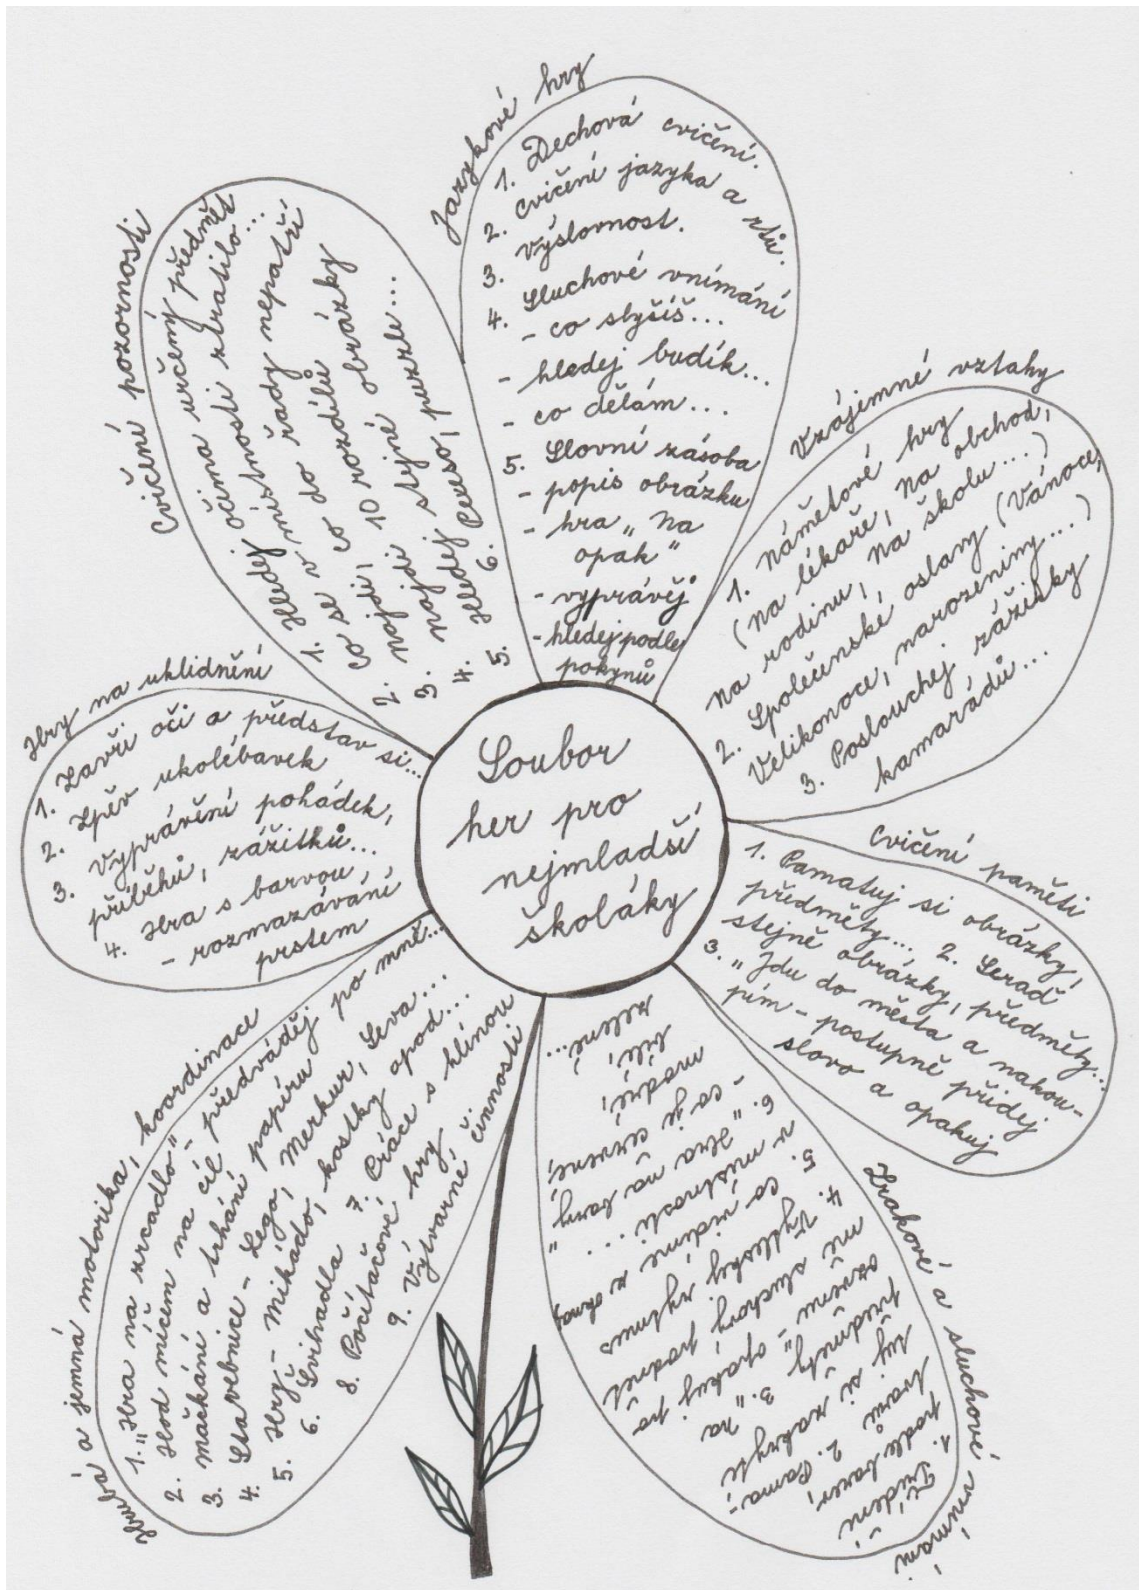 Soubor
her pro
nejmladší
školáky
Jazykové hry
1. Dechová cvičení.
2. Cvičení jazyka a rtů.
3. Výslovnost.
4. Sluchové vnímání
- co slyšíš...
- hledej budík...
- co dělám...
5. Slovní zásoba
- popis obrázku
- hra „Na
opak“
- vyprávěj
- hledej podle
pokynů
Vzájemné vztahy
1. Námětové hry
(Na lékaře, na obchod,
na rodinu, na školu...)
2. Společenské oslavy (Vánoce,
Velikonoce, narozeniny...)
3. Poslouchej zážitky
kamarádů...
Cvičení paměti
1. Pamatuj si obrázky,
předměty... 2. Seraď
stejně obrázky, předměty...
3. „Jdu do města a nakou-
pím - postupně přidej
slovo a opakuj
Zrakové a sluchové vnímání
1. Třídění
podle barev,
tvarů 2. Pama-
tuj si zakryté
předměty 3. „Na
ozvěnu“ - opakuj po
mě sluchový podnět
4. Vytleskej rytmus
5. Co vidíme z okna,
v místnosti...
6. „Hra na barvy“
- co je červené,
modré,
bílé,
zelené...
Hrubá a jemná motorika, koordinace
1. „Hra na zrcadlo“ - předváděj po mně...
2. Hod míčem na cíl
3. Máčkání a trhání papíru
4. Stavebnice - Lego, Merkur, Seva...
5. Hry - Mikádo, kostky apod...
6. Švihadla 7. Práce s hlínou
8. Počítačové hry
9. Výtvarné činnosti
Hry na uklidnění
1. Zavři oči a představ si...
2. Zpěv ukolébavek
3. Vyprávění pohádek,
příběhů, zážitků...
4. Hra s barvou,
- rozmazávání
prstem
Cvičení pozornosti
1. Hledej očima určený předmět
Co se v místnosti ztratilo...
2. Najdi, co do řady nepatří
3. Najdi 10 rozdílů
4. Hledej stejné obrázky
5. 6. Pexeso, puzzle...